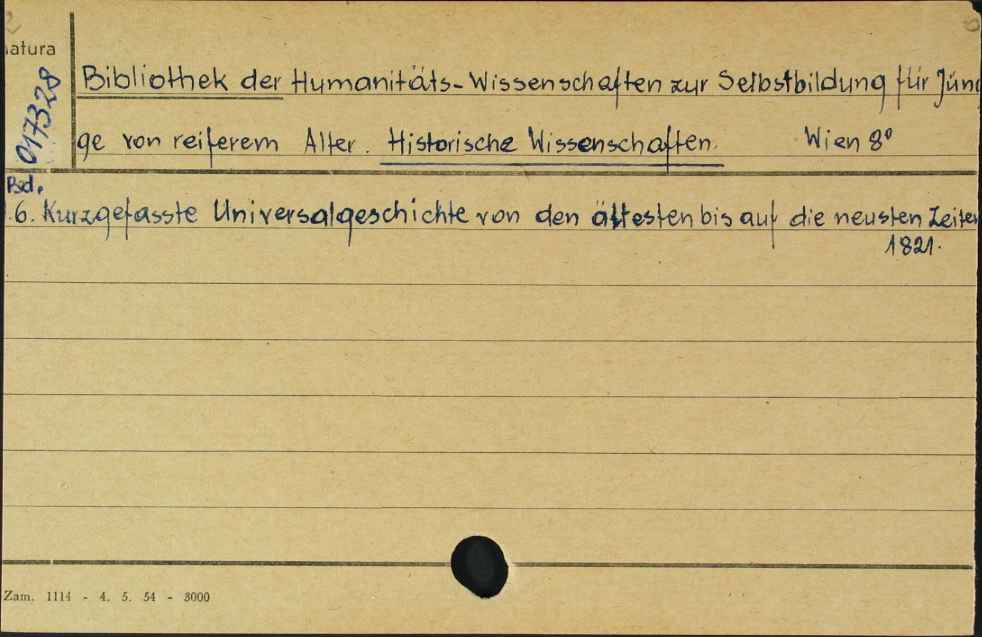 atura
017328
Bibliothek der Humanitäts-Wissenschaften zur Selbstbildung für Jün
ge von reiferem Alter. Historische Wissenschaften. Wien 8°
Bd.
6. Kurzgefasste Universalgeschichte von den ältesten bis auf die neusten Zeiten
1821.
Zam. 1114 - 4. 5. 54 - 3000